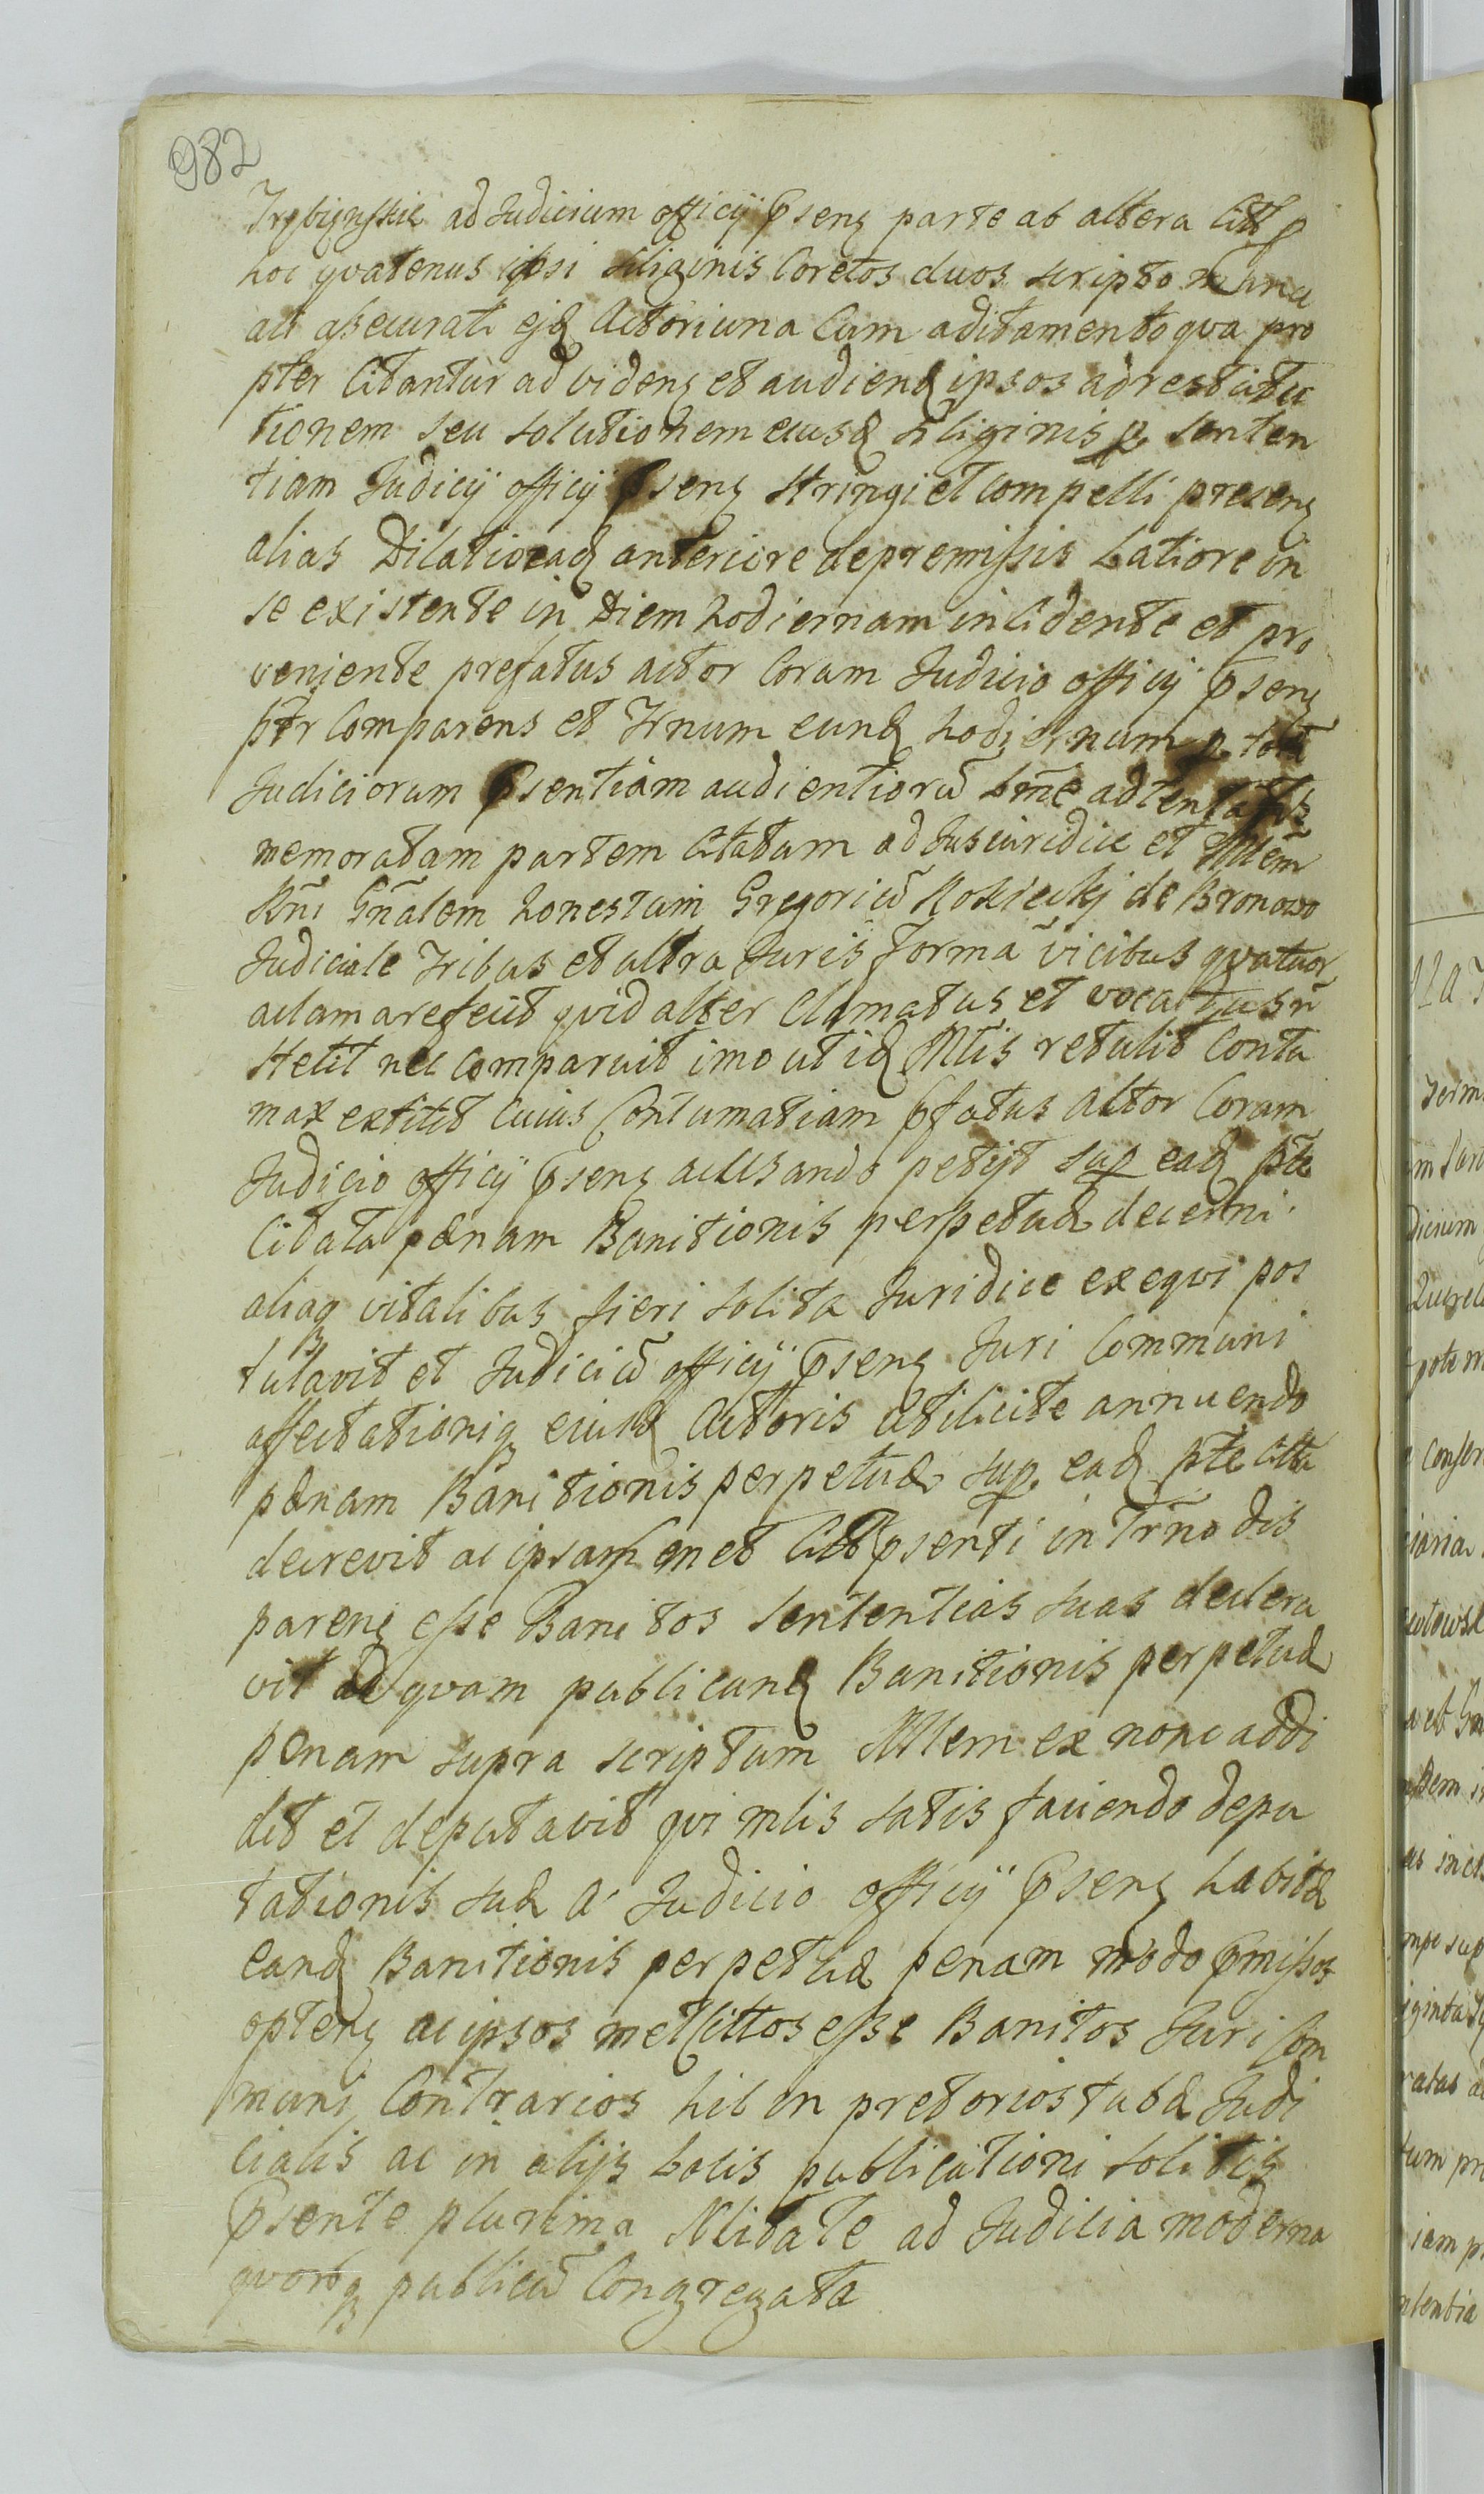 982
Trzbijnskie ad Judicium officij p̃senz parte ab altera Citt p
hoc qvatenus ipsi siliginis Coretos duos scripto manu
ali assecurati ejd Actori una Cum aditamento qva pro
pter Citantur ad videnz et audiend ipsos ad restitu
tionem seu solutionem eiusd siliginis p senten
tiam Judicij officij p̃senz stringi et Compelli presenz
alias Dilatioead anteriore de premissis Latiore in
se existente in Diem hodiernam incidente et pro
veniente prefatus actor Coram Judicio officij p̃senz
pttr Comparens et Trnum eund hodiernum p tot
Judiciorum p̃sentiam audientiorũ bm̃e adtentatus
memoratam partem Citatam ad Jus iuridice et Mtlem
Rñi Gñalem honestum Gregoriũ Rokiecki de Bronowo
Judiciale Tribus et ultra Juris forma vicibus qvatuor
aclamare fecit qvid alter Clamatus et vocatus ñ
stetit nec Comparuit imo ut id Mtlis retulit Contu
max extitit Cuius Contumatiam p̃fatus Actor Coram
Judicio officij p̃senz accusando petijt sup ead pte
Citata pænam Banitionis perpetuæ decerni
aliaq vitalibus fieri solita Juridice exeqvi pos
tulavit et Judiciũ officij p̃senz Juri Communi
affectationiq eiusd Actoris utilicite annuendo
pænam Banitionis perpetuæ sup ead pte Citta
decrevit ac ipsam met Citt p̃senti in Trño dis
parenz esse Banitos sententias suas declera
vit ad qvam publicand Banitionis perpetuæ
penam supra scriptum Mtlem ex nonc addi
dit et deputavit qvi mlis satis faciendo depu
tationis suæ a Judicio officij p̃senz habitæ
eand Banitionis perpetuæ penam modo p̃missos
optenz ac ipsos met Cittos esse Banitos Juri Com
muni Contrarios hic in pretorio stubæ Judi
cialis ac in alijs Locis publicationi solitis
p̃sente plurima Nlitate ad Judicia moderna
qvorbq publicũ Congregata